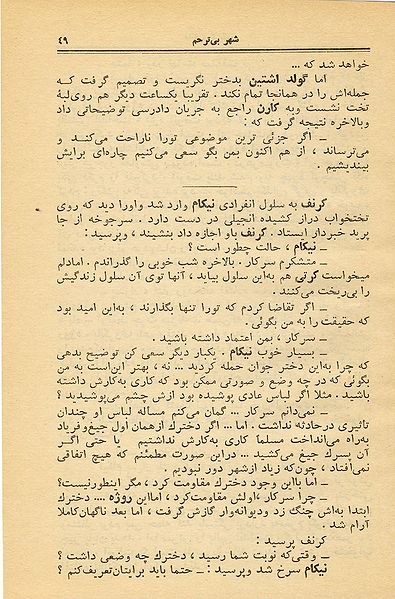 شهر بی‌ترحم
۴۹
خواهد شد که ...
اما گولد اشتین بدختر نگریست و تصمیم گرفت که
جمله‌اش را در همانجا تمام نکند . تقریبا یکساعت دیگر هم روی‌لبهٔ
تخت نشست وبه کارن راجع به جریان دادرسی توضیحاتی داد
وبالاخره نتیجه گرفت که :
ــ اگر جزئی ترین موضوعی تورا ناراحت می‌کند و
می‌ترساند ، از هم اکنون بمن بگو سعی می‌کنیم چاره‌ای برایش
بیندیشیم .
کرنف به سلول انفرادی نیکام وارد شد واورا دید که روی
تختخواب دراز کشیده انجیلی در دست دارد . سرجوخه از جا
پرید خبردار ایستاد . کرنف باو اجازه داد بنشیند ، وپرسید :
ــ نیکام ، حالت چطور است ؟
ــ متشکرم سرکار . بالاخره شب خوبی را گذراندم . امادلم
میخواست کرتی هم به‌این سلول بیاید ، آنها توی آن سلول زندگیش
را بی‌ریخت می‌کنند .
ــ اگر تقاضا کردم که تورا تنها بگذارند ، به‌این امید بود
که حقیقت را به من بگوئی .
ــ سرکار ، بمن اعتماد داشته باشید .
ــ بسیار خوب نیکام . یکبار دیگر سعی کن توضیح بدهی
که چرا به‌این دختر جوان حمله کردید ... نه ، بهتر این‌است به من
بگوئی که در چه وضع و صورتی ممکن بود که کاری به‌کارش نداشته
باشید . مثلا اگر لباس عادی پوشیده بود ازش چشم می‌پوشیدید ؟
ــ نمی‌دانم سرکار ... گمان می‌کنم مساله لباس او چندان
تاثیری درحادثه نداشت . اما ... اگر دخترك ازهمان اول جیغ‌وفریاد
به‌راه می‌انداخت مسلما کاری به‌کارش نداشتیم یا حتی اگر
آن پسرك جیغ می‌کشید ... دراین صورت مطمئنم که هیچ اتفاقی
نمی‌افتاد ، چون‌که زیاد ازشهر دور نبودیم .
ــ اما بااین وجود دخترك مقاومت کرد ، مگر اینطورنیست؟
ــ چرا سرکار ،اولش مقاومت‌کرد ، امااین روژه .... دخترك
ابتدا به‌اش چنگ زد ودیوانه‌وار گازش گرفت ، اما بعد ناگهان‌کاملا
آرام شد .
کرنف پرسید :
ــ وقتی‌که نوبت شما رسید ، دخترك چه وضعی داشت ؟
نیکام سرخ شد وپرسید : ــ حتما باید برایتان‌تعریف‌کنم ؟